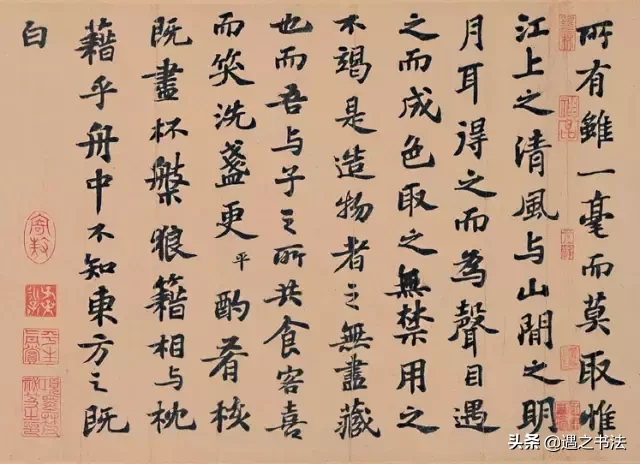 所有雖一毫而莫取惟
江上之清風与山間之明
月耳得之而為聲目遇
之而成色取之無禁用之
不竭是造物者之無盡藏
也而吾与子之所共食客喜
而笑洗盞更平酌肴核
既盡杯槃狼籍相与枕
藉乎舟中不知東方之既
白
头条 @遇之书法